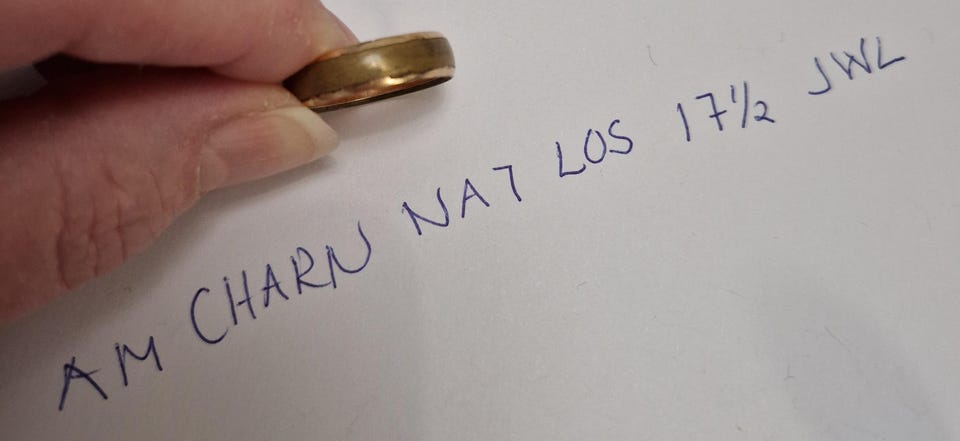 AM CHARN NAT LOS 17½ JWL